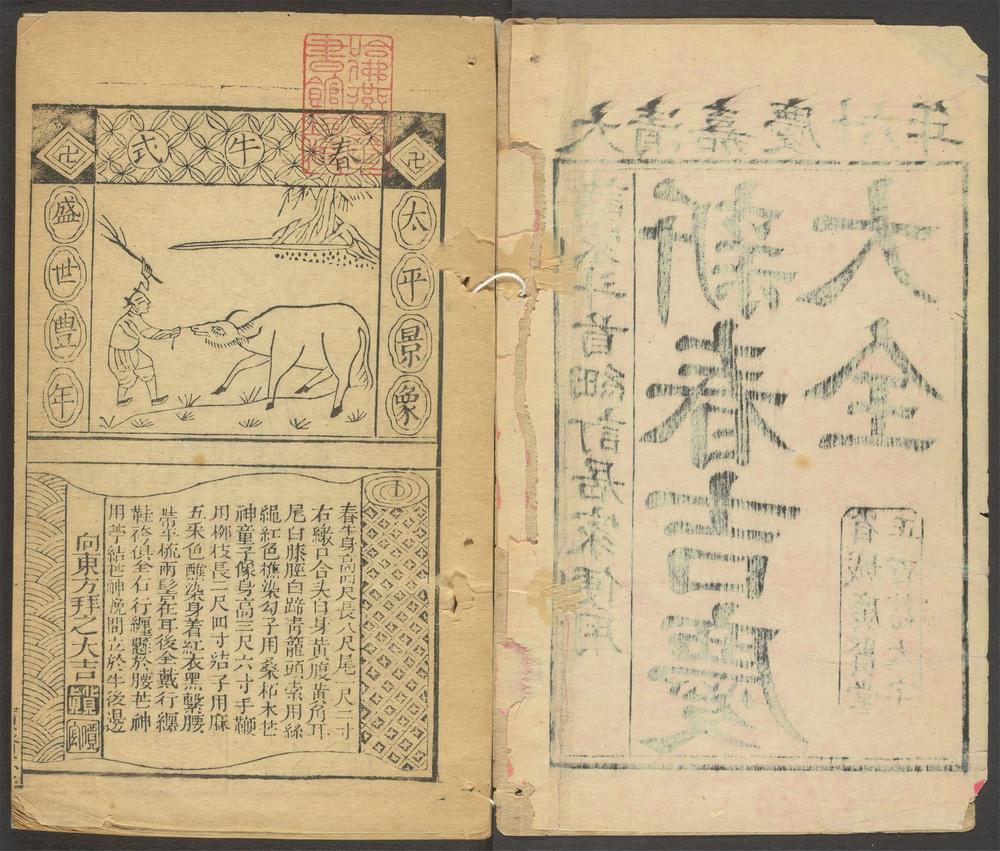 哈佛燕
書館
春牛式
卍
卍
太平景象
盛世豐年
春牛身高四尺長八尺尾一尺二寸
右繳戶合夫白身黃腹黃角耳
尾白膝脛白蹄青籠頭索用絲
繩紅色樵染勾子用桑柘木芒
神童子像身高三尺六寸手鞭
用柳枝長二尺四寸結子用麻
五采色醮染身着紅衣黑繫腰
帶平梳兩髻在耳後全戴行纏
鞋袴俱全右行纏懸於腰芒神
用苧結芒神晚間立於牛後邊
向東方拜之大吉
大清嘉慶廿六年
斗首細訂居家便用
新春吉慶
大全
省城